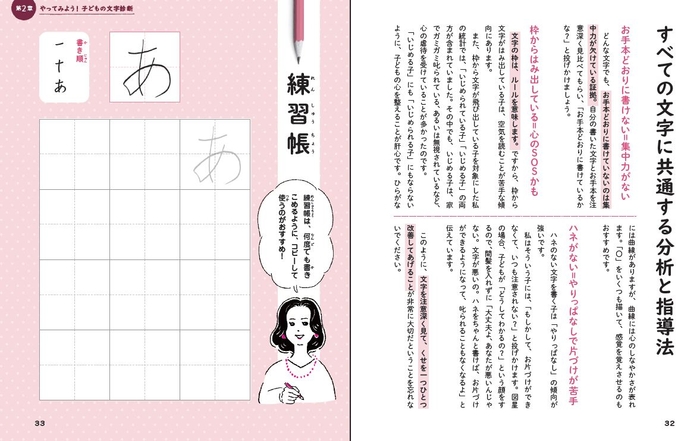 すべての文字に共通する分析と指導法
お手本どおりに書けない=集中力がない
どんな文字でも、お手本どおりに書けていないのは集
中力が欠けている証拠。自分の書いた文字とお手本を注
意深く見比べてもらい、「お手本どおりに書けているか
な?」と投げかけましょう。
枠からはみ出している=心のSOSかも
文字の枠は、ルールを意味します。ですから、枠から
文字がはみ出している子は、空気を読むことが苦手な傾
向にあります。
また、枠から文字が飛び出している子を対象にした私
の統計では、「いじめられている子」「いじめる子」の両
方が含まれていました。その中でも、いじめる子は、家
でガミガミ叱られている、あるいは無視されているなど、
心の虐待を受けていることが多かったのです。
「いじめる子」にも「いじめられる子」にもならない
ように、子どもの心を整えることが肝心です。ひらがな
には曲線がありますが、曲線には心のしなやかさが表れ
ます。「〇」をいくつも描いて、感覚を覚えさせるのも
おすすめです。
ハネがない=やりっぱなしで片づけが苦手
ハネのない文字を書く子は「やりっぱなし」の傾向が
強いです。
私はそういう子には、「もしかして、お片づけができ
なくて、いつも注意されない?」と投げかけます。図星
の場合、子どもが「どうしてわかるの?」という顔をす
るので、間髪を入れずに「大丈夫よ。あなたが悪いんじゃ
ない。文字が悪いの。ハネをちゃんと書けば、お片づけ
ができるようになって、叱られることもなくなるよ」と
伝えています。
このように、文字を注意深く見て、くせを一つひとつ
改善してあげることが非常に大切だということを忘れな
いでください。
32
第2章 やってみよう!子どもの文字診断
練習帳
れんしゅうちょう
あ
書き順
か じゅん
一 十 あ
あ
練習帳は、何度でも書き
こめるように、コピーして
使うのがおすすめ!
33